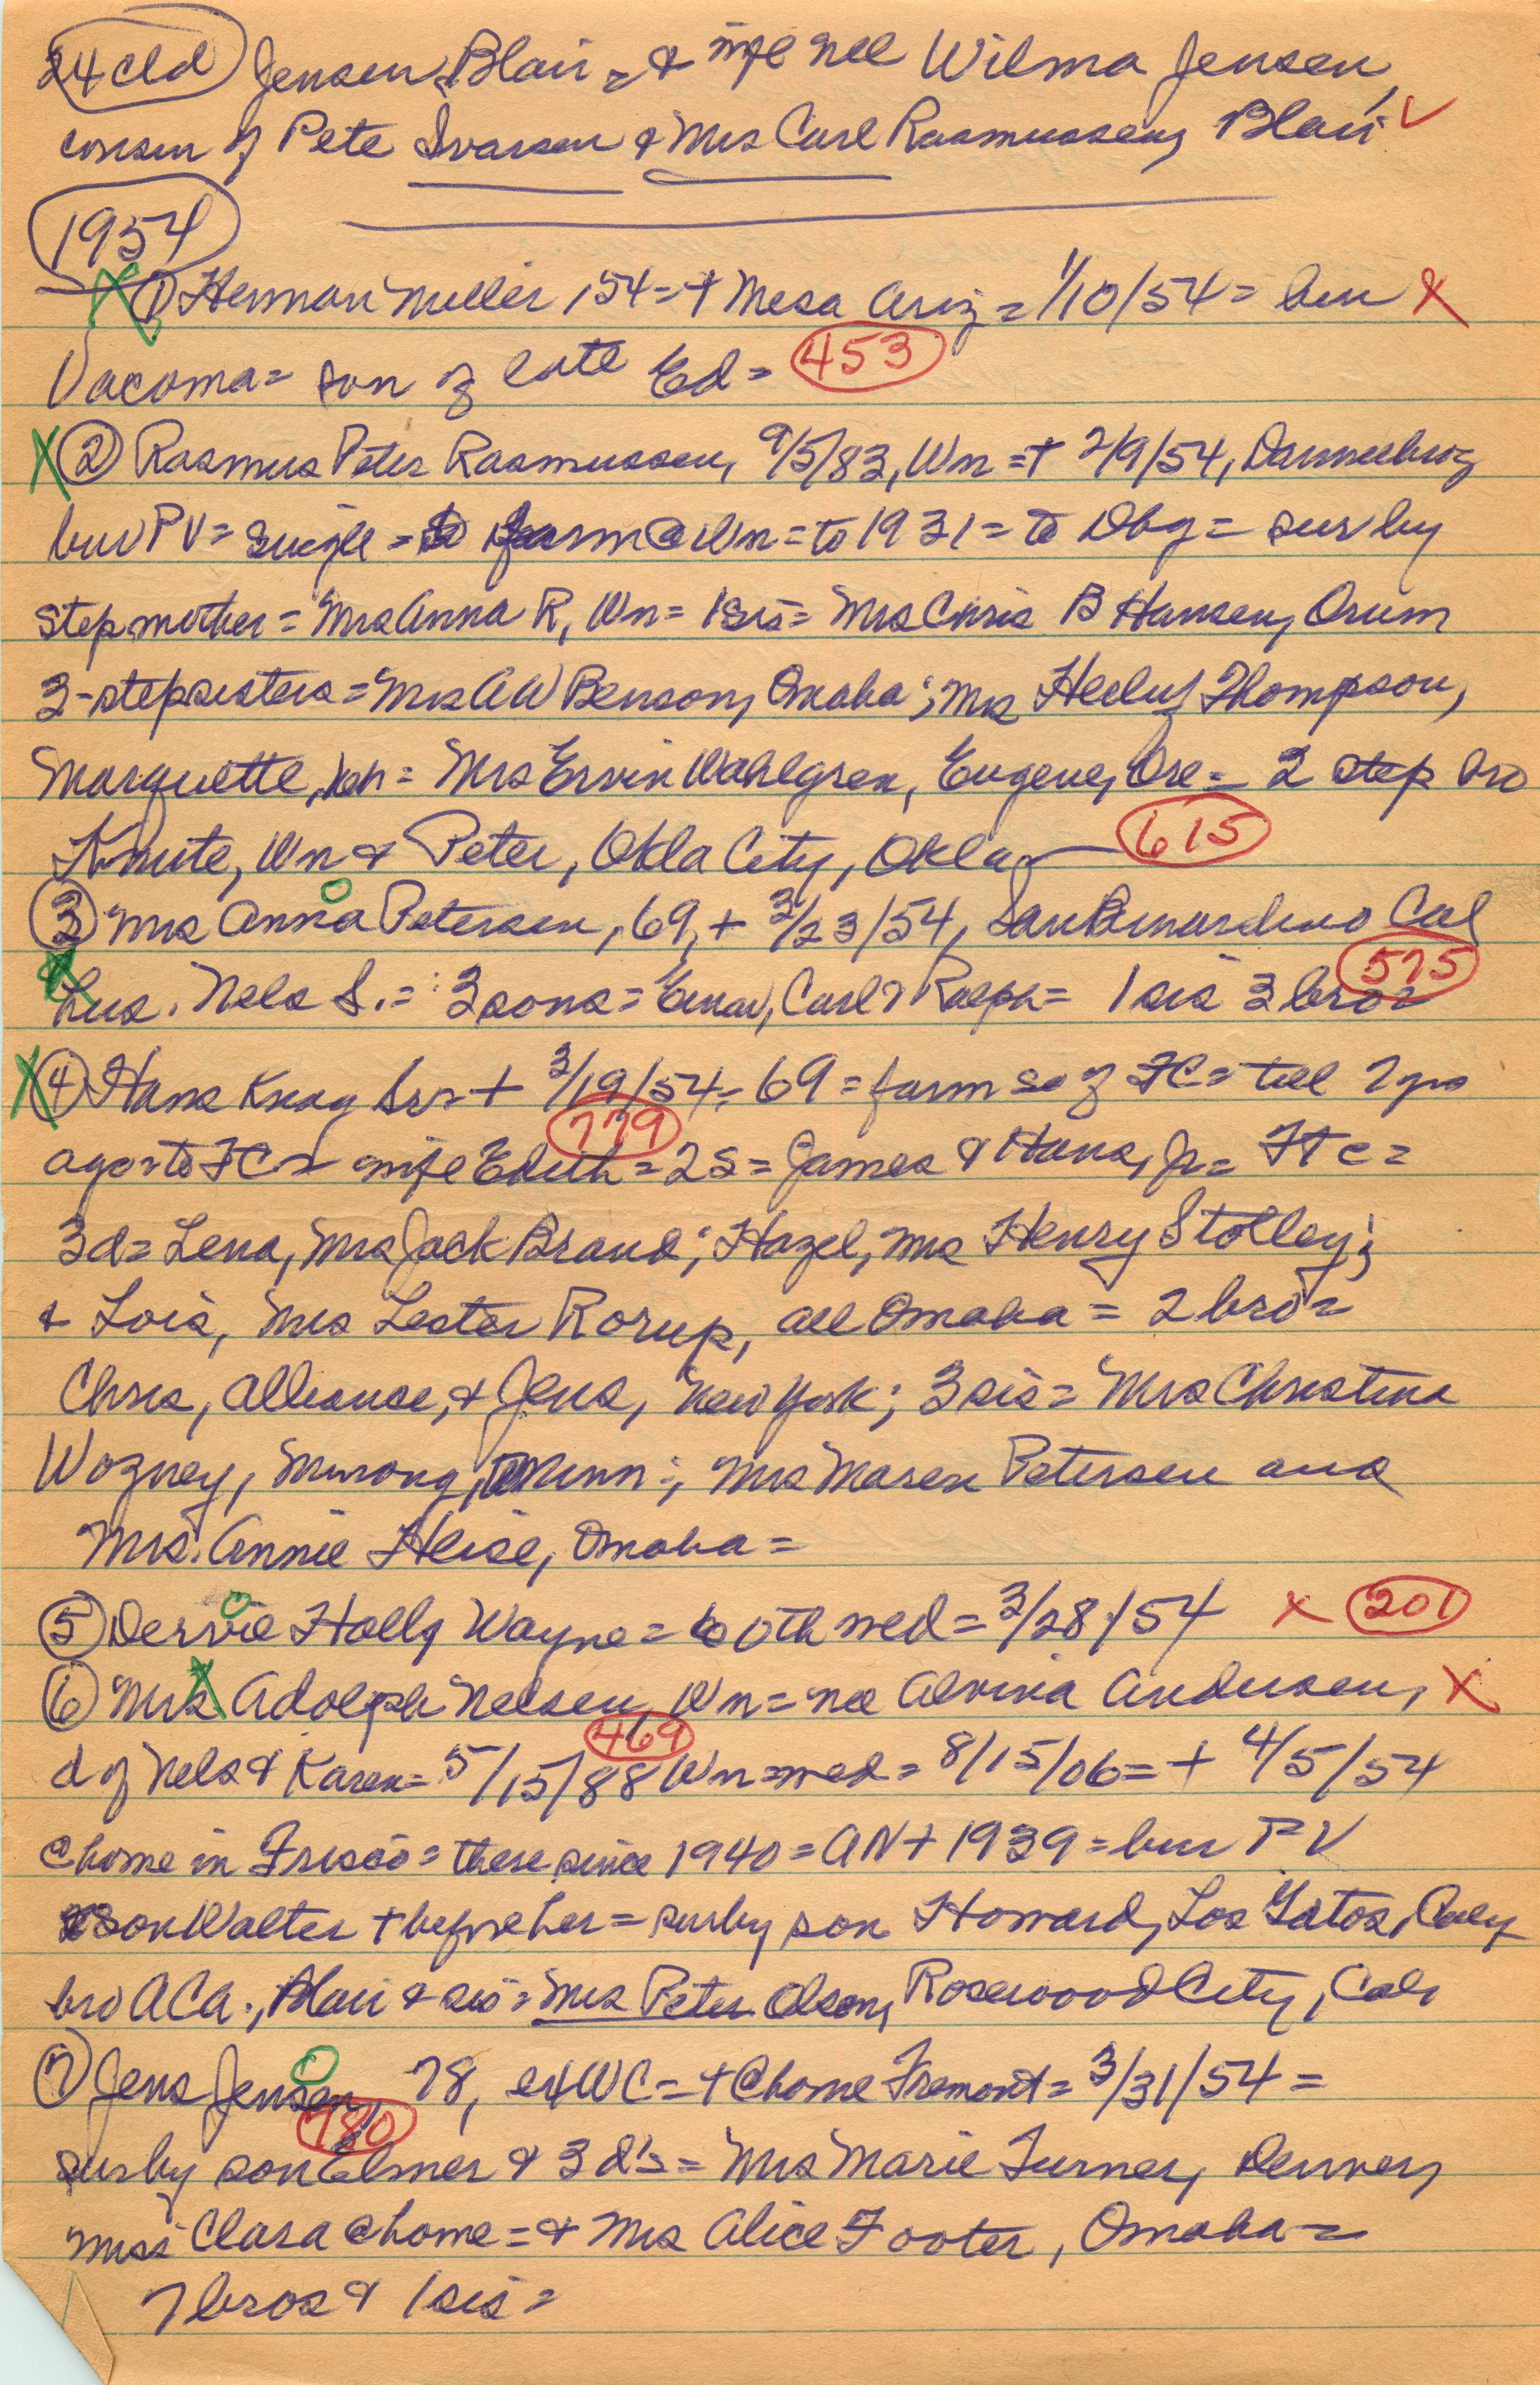 24 cld Jensen, Blair = & wife nee Wilma Jensen,
cousin of Pete Ivarsen & Mrs Carl Rasmussen, Blair ✓
1954
X ① Herman Miller, 54 = + Mesa Ariz = 1/10/54 = bur X
Vacoma = son of late Ed = 453
X ② Rasmus Peter Rasmussen, 9/5/83, Wn = + 2/9/54, Dannebrog
bur PV = single = farm @ Wn = to 1931 = to Dbg = sur by
stepmother = Mrs Anna R, Wn = 1 sis = Mrs Chris B Hansen, Orum
3-stepsisters = Mrs AW Benson, Omaha; Mrs Thompson,
Marquette, = Mrs Ervin Wahlgren, Eugene, Ore = 2 step bro
Knute, Wn & Peter, Okla City, Okla 615
③ Mrs Anna Petersen, 69, + 3/23/54, San Bernardino Cal
X hus. Nels S. = 3 sons = Einar, Carl & Ralph = 1 sis 3 bro = 575
X ④ Hans Knag Sr = + 3/19/54 = 69 = farm so of FC = till 7 yrs
ago = to FC = wife Edith = 2 s = James & Hans, Jr = Ft C = 779
3d = Lena, Mrs Jack Brand; Hazel, Mrs Henry Stolley;
& Lois, Mrs Lester Rorup, all Omaha = 2 bro =
Chris, Alliance, & Jens, New York; 3 sis = Mrs Christina
Wozney, Minn; Mrs Maren Petersen and
Mrs. Annie Heise, Omaha =
⑤ Dervie Hally Wayne = 60th wed = 3/28/54 X 201
⑥ Mrs Adolph Nelsen, Wn = nee Alvina Andersen, X
d of Nels & Karen = 5/15/88 Wn = wed = 8/15/06 = + 4/5/54 469
@ home in Frisco = there since 1940 = AN + 1939 = bur PV
son Walter + before her = sur by son Howard, Los Gatos, Cal;
bro ACA., Blair & sis = Mrs Peter Olson, Rosewood City, Cal
⑦ Jens Jensen, 78, ex WC = + @ home Fremont = 3/31/54 = 780
sur by son Elmer & 3 d's = Mrs Marie Turner, Denver,
Miss Clara @ home = & Mrs Alice Footer, Omaha =
7 bros & 1 sis =